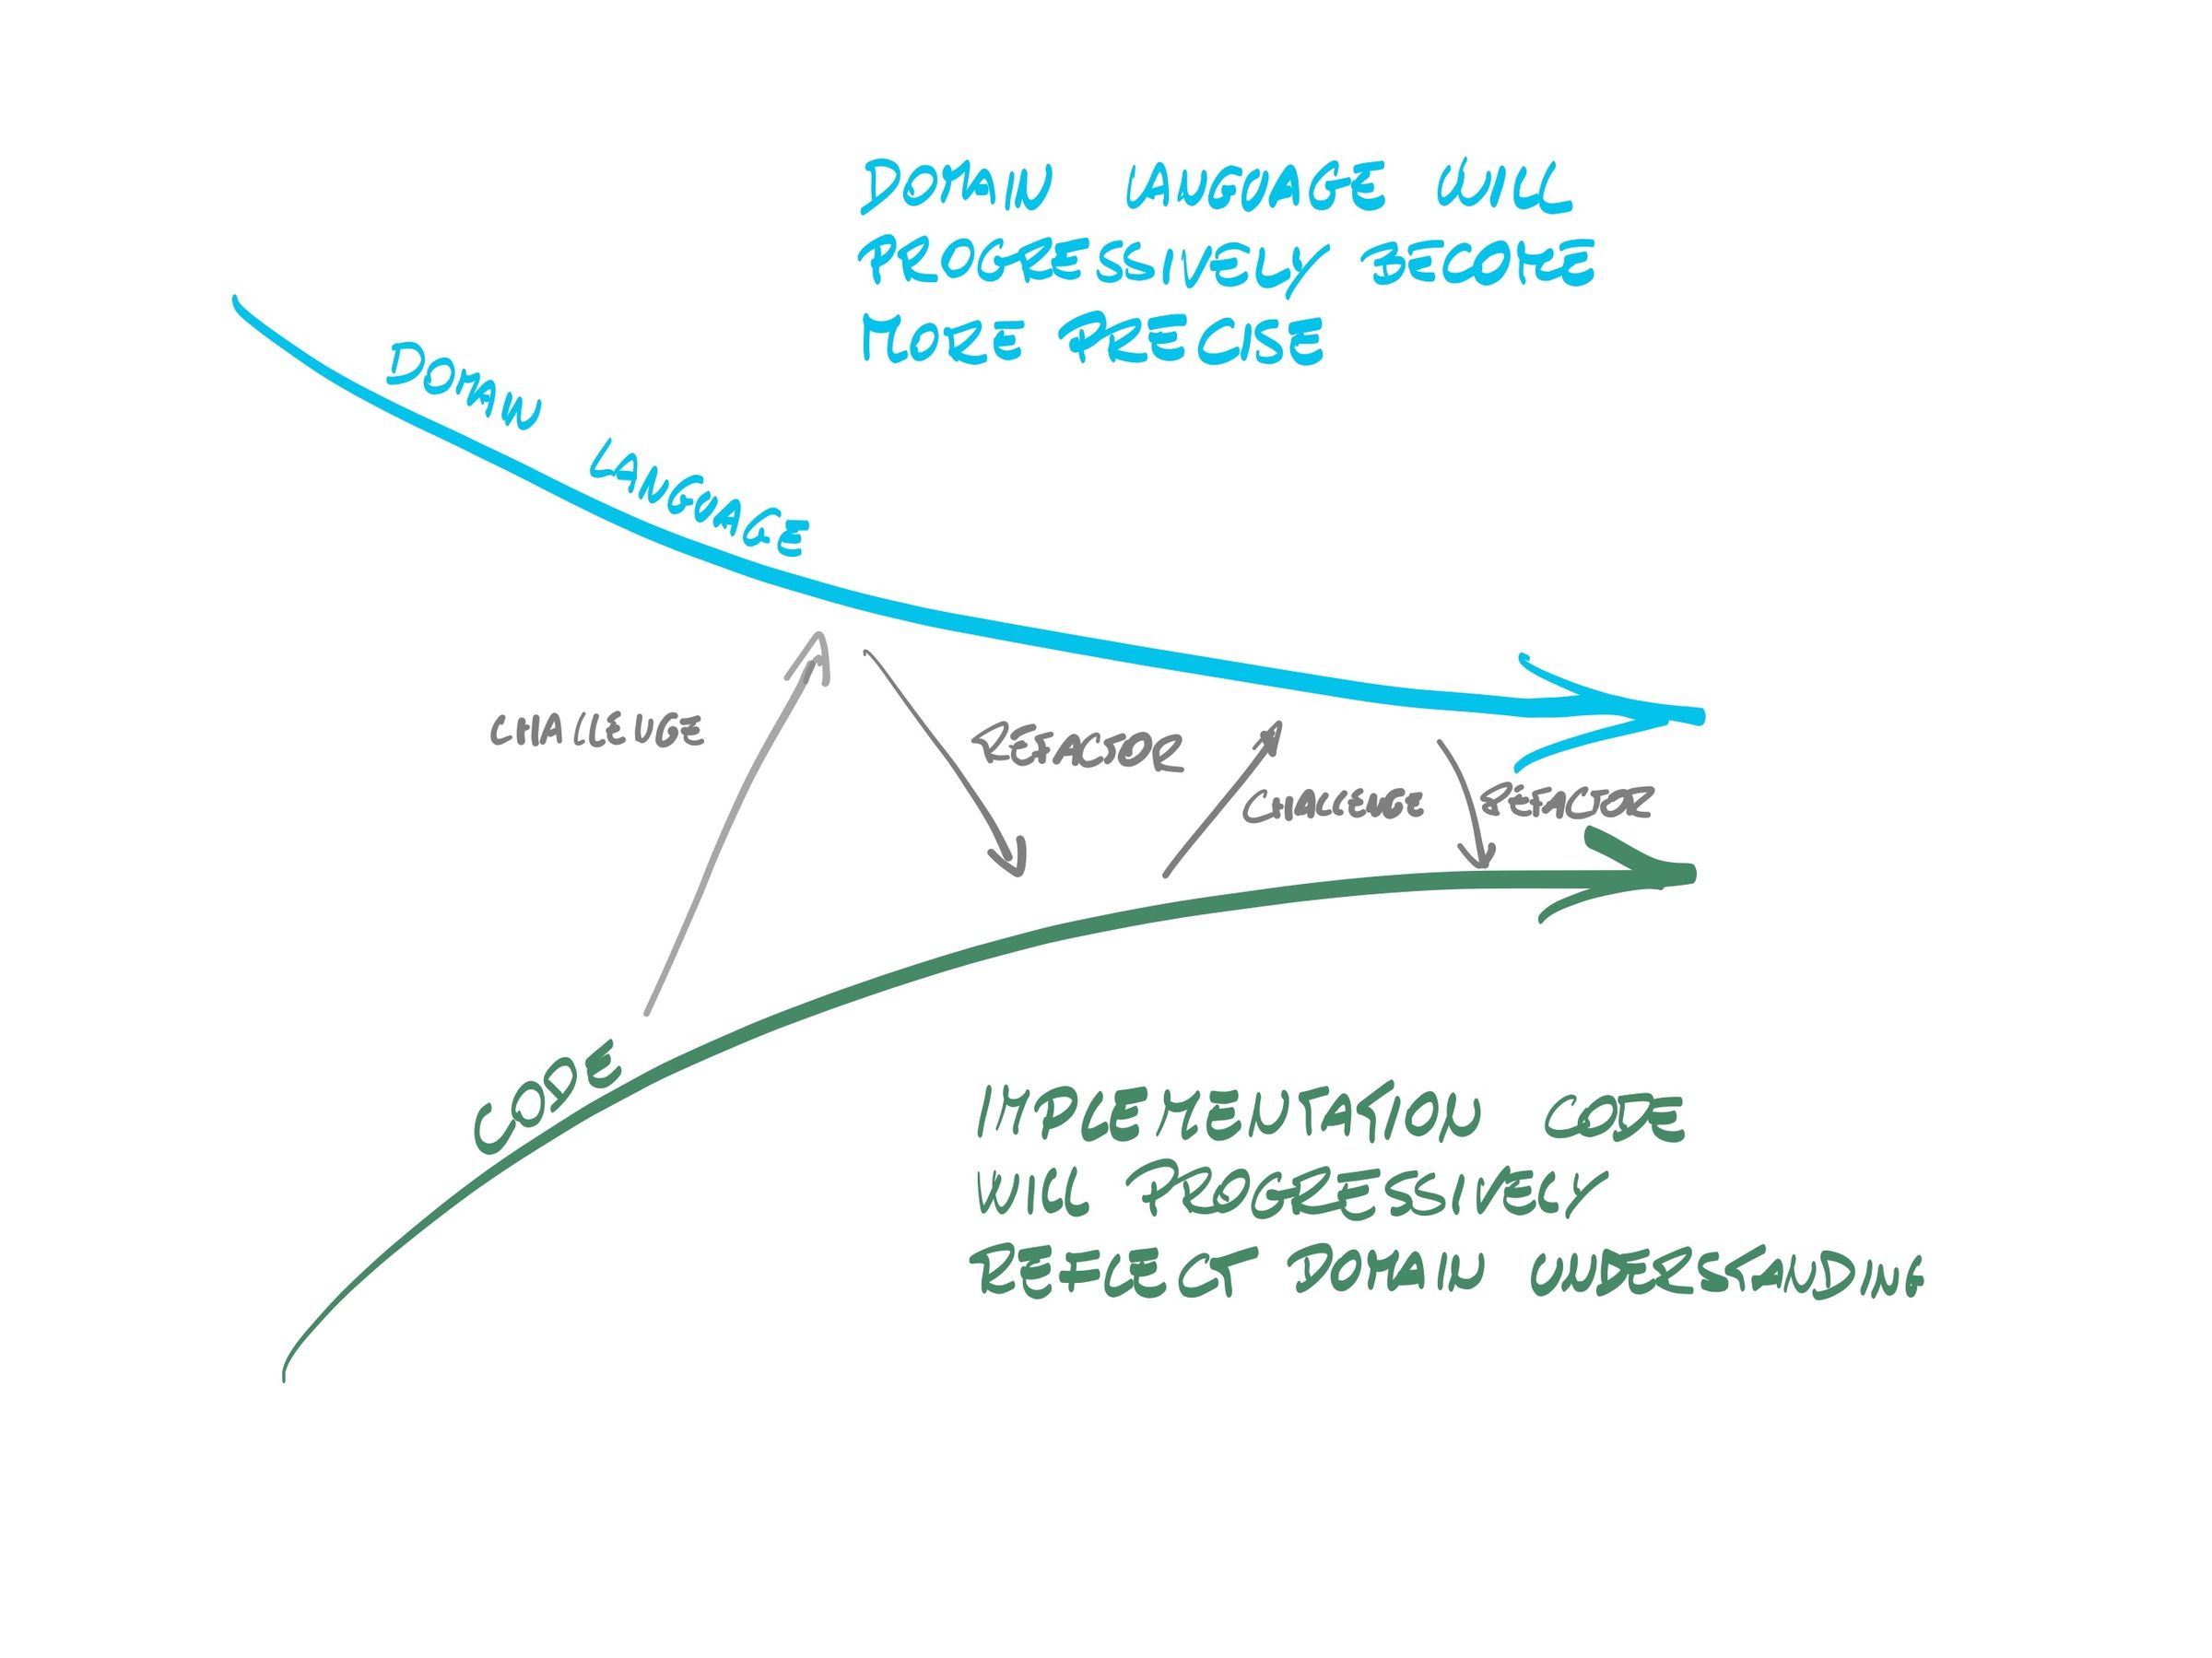 DOMAIN LANGUAGE WILL
PROGRESSIVELY BECOME
MORE PRECISE
DOMAIN LANGUAGE
CHALLENGE
REFACTOR
CHALLENGE
REFACTOR
CODE
IMPLEMENTATION CODE
WILL PROGRESSIVELY
REFLECT DOMAIN UNDERSTANDING